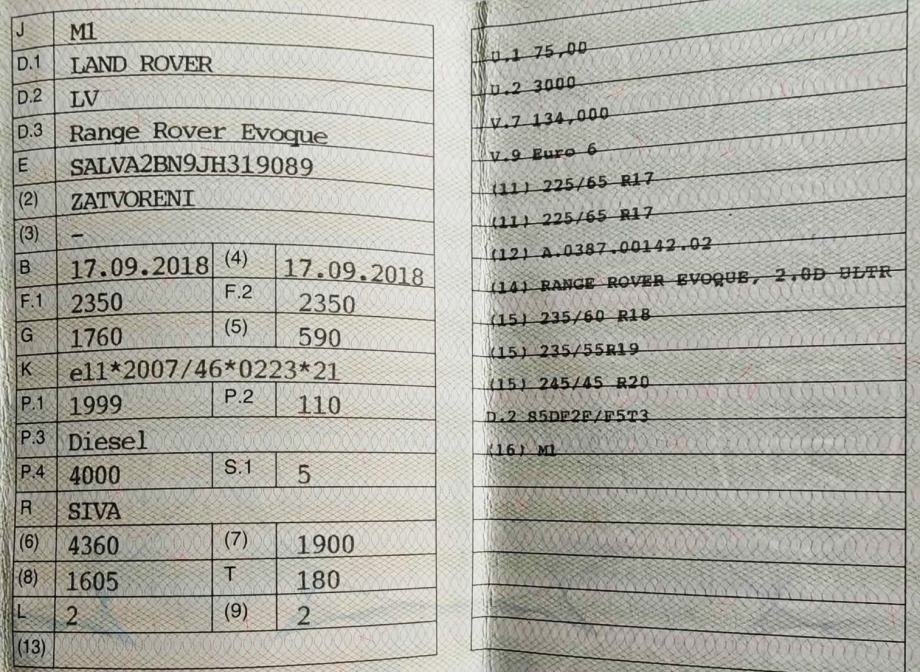 J M1
D.1 LAND ROVER
D.2 LV
D.3 Range Rover Evoque
E SALVA2BN9JH319089
(2) ZATVORENI
(3) –
B 17.09.2018 (4) 17.09.2018
F.1 2350 F.2 2350
G 1760 (5) 590
K e11*2007/46*0223*21
P.1 1999 P.2 110
P.3 Diesel
P.4 4000 S.1 5
R SIVA
(6) 4360 (7) 1900
(8) 1605 T 180
L 2 (9) 2
(13)
U.1 75,00
U.2 3000
V.7 134,000
V.9 Euro 6
(11) 225/65 R17
(11) 225/65 R17
(12) A.0387.00142.02
(14) RANGE ROVER EVOQUE, 2.0D ULTR
(15) 235/60 R18
(15) 235/55R19
(15) 245/45 R20
D.2 S5DF2F/F5T3
(16) M1